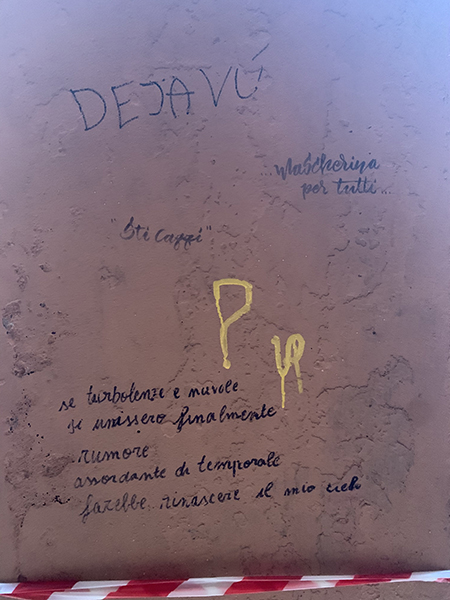 DEJAVÚ
...Mascherina
per tutti...
"Sti cazzi"
P
se turbolenze e nuvole
si unissero finalmente
rumore
assordante di temporale
farebbe rinascere il mio cielo